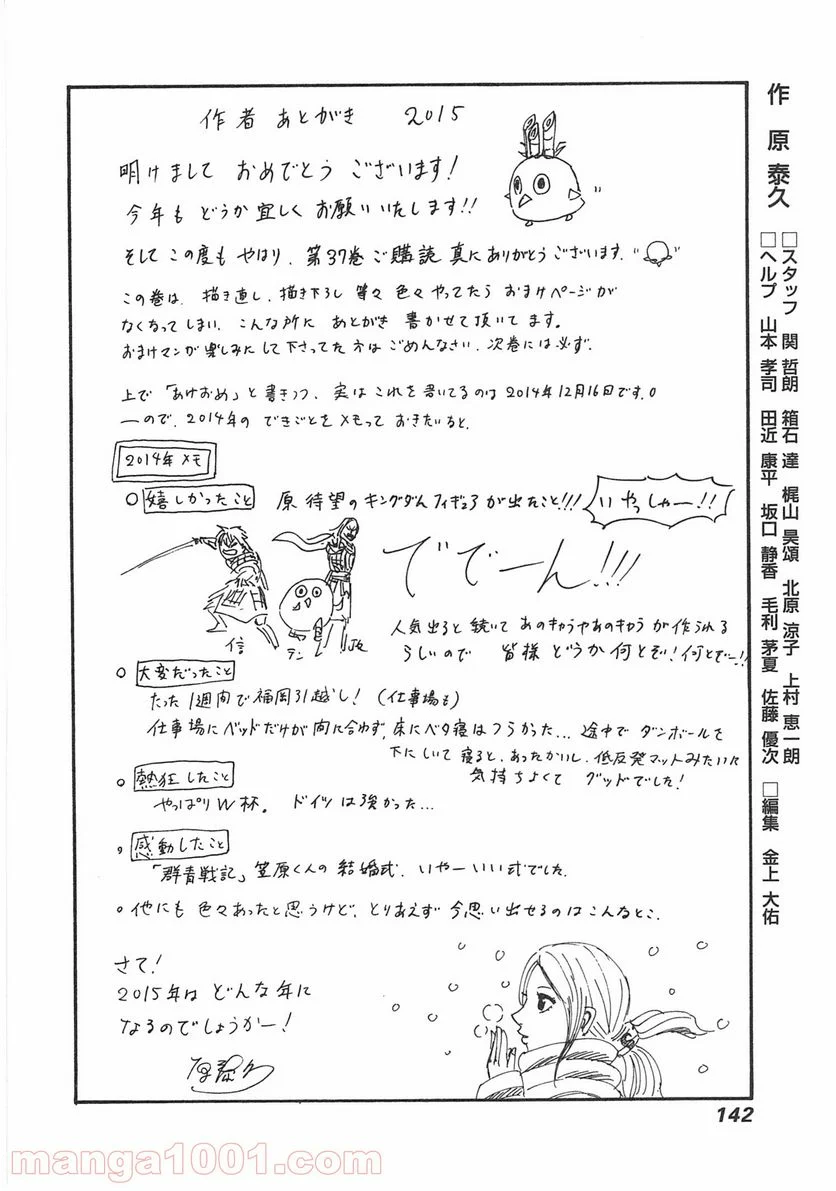 作者あとがき 2015
明けまして おめでとう ございます!
今年も どうか宜しく お願いいたします!!
そして この度も やはり、第37巻ご購読 真にありがとうございます。
この巻は、描き直し、描き下ろし 等々 色々 やってたら おまけページが
なくなってしまい、こんな所に あとがき 書かせて頂いてます。
おまけマンが楽しみにして下さってた方はごめんなさい、次巻には必ず。
上で「あけおめ」と書きつつ、実はこれを書いてるのは2014年12月16日です。
ーので、2014年の できごとを メモって おきたいると、
2014年メモ
○ 嬉しかったこと 原 待望の キングダムフィギュアが出たこと!!! いやっしゃー!!
ででーん!!!
信 テン
人気出ると続いて あのキャラやあのキャラ が 作られる
らしいので 皆様 どうか何とぞ!何とぞー!!
○ 大変だったこと
たった1週間で福岡引越し!(仕事場も)
仕事場にベッドだけが間に合わず、床にベタ寝はつらかった… 途中で ダンボールを
下にしいて 寝ると、あったかいし、低反発マットみたいに
気持ちよくて グッドでした!
○ 熱狂したこと
やっぱりW杯。 ドイツは強かった…
○ 感動したこと
「群青戦記」笠原くんの 結婚式、いやーいい式でした。
○他にも 色々あったと思うけど、とりあえず 今思い出せるのはこんなとこ。
さて!
2015年は どんな年に
なるのでしょうかー!
原泰久
作 原 泰久
□スタッフ 関 哲朗 箱石 達 梶山 昊頌 北原 涼子 上村 恵一朗
□ヘルプ 山本 孝司 田近 康平 坂口 静香 毛利 茅夏 佐藤 優次 □編集 金上 大佑
142
manga1001.com